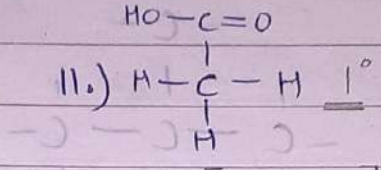 HO-C=O
11.) H-C-H 1°
H